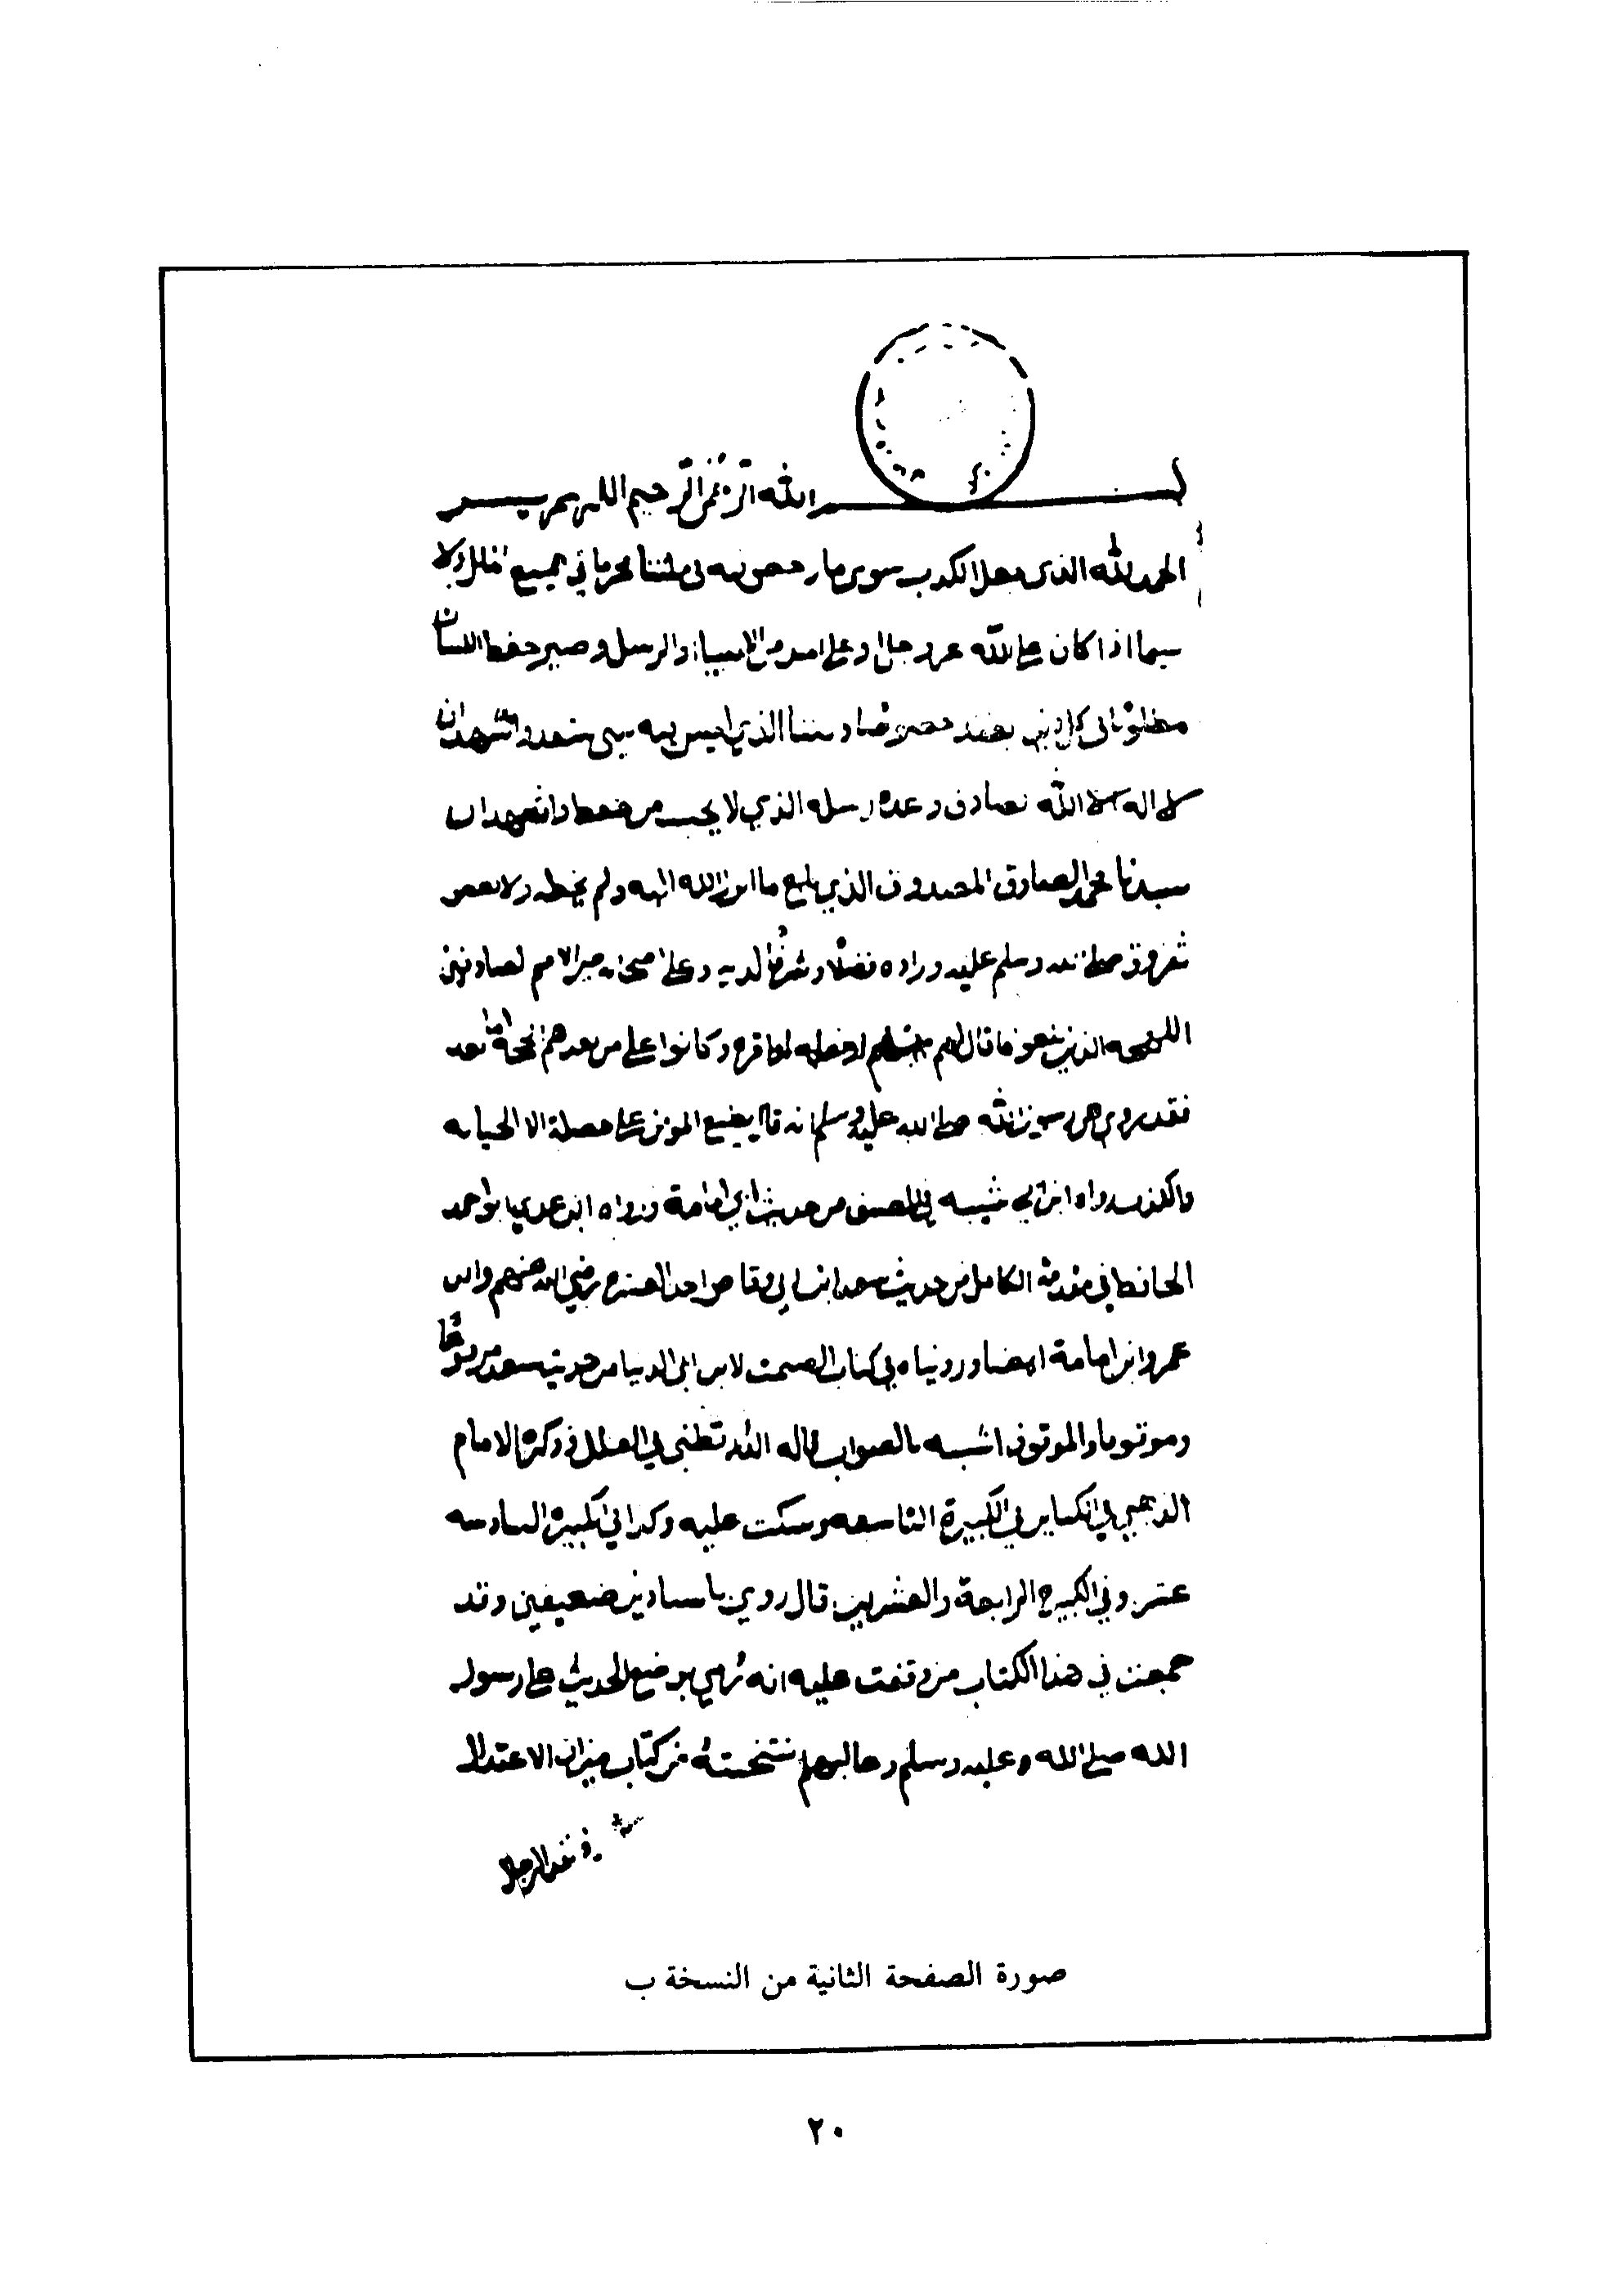 بسم الله الرحمن الرحيم اللهم يسر
الحمد لله الذي جعل الكذب سوى ما رخص فيه في ملتنا محرما في جميع الملل ولا
سيما اذا كان على الله عز وجل او على احد من الانبياء والرسل وصير حفظ اللسان
مطلوبا في كل دين خصوصا ديننا الذي ليس فيه واشهد ان
لا اله الا الله صادق وعده رسله الذي لا واشهد ان
سيدنا محمد الصادق المصدوق الذي بلغ ما انزل الله اليه ولم
صلى الله وسلم عليه وزاده فضلا وشرفا لديه وعلى خير الامم الصادقين
الذين قال لهم وكانوا على من بعدهم اما بعد
فقد روي عن رسول الله صلى الله عليه وسلم انه قال يطبع المؤمن على خصلة الا الخيانة
والكذب رواه ابن ابي شيبة في المصنف من حديث ابي امامة ورواه ابن عدي ابو احمد
الحافظ في مقدمة الكامل من حديث سعد ابن ابي وقاص احد العشرة رضي الله عنهم وابن
عمر وابي امامة ايضا ورويناه في كتاب الصمت لابن ابي الدنيا من حديث سعد مرفوعا
وموقوفا والموقوف اشبه بالصواب قاله الدارقطني في العلل وذكره الامام
الذهبي في الكبائر في الكبيرة التاسعة وسكت عليه وكذا في الكبيرة السادسة
عشر وفي الكبيرة الرابعة والعشرين قال روي باسنادين ضعيفين وقد
جمعت في هذا الكتاب من وقفت عليه انه رمي بوضع الحديث على رسول
الله صلى الله وعليه وسلم وغالبهم انتخبته من كتاب ميزان الاعتدال
في نقد الرجال
صورة الصفحة الثانية من النسخة ب
٢٠